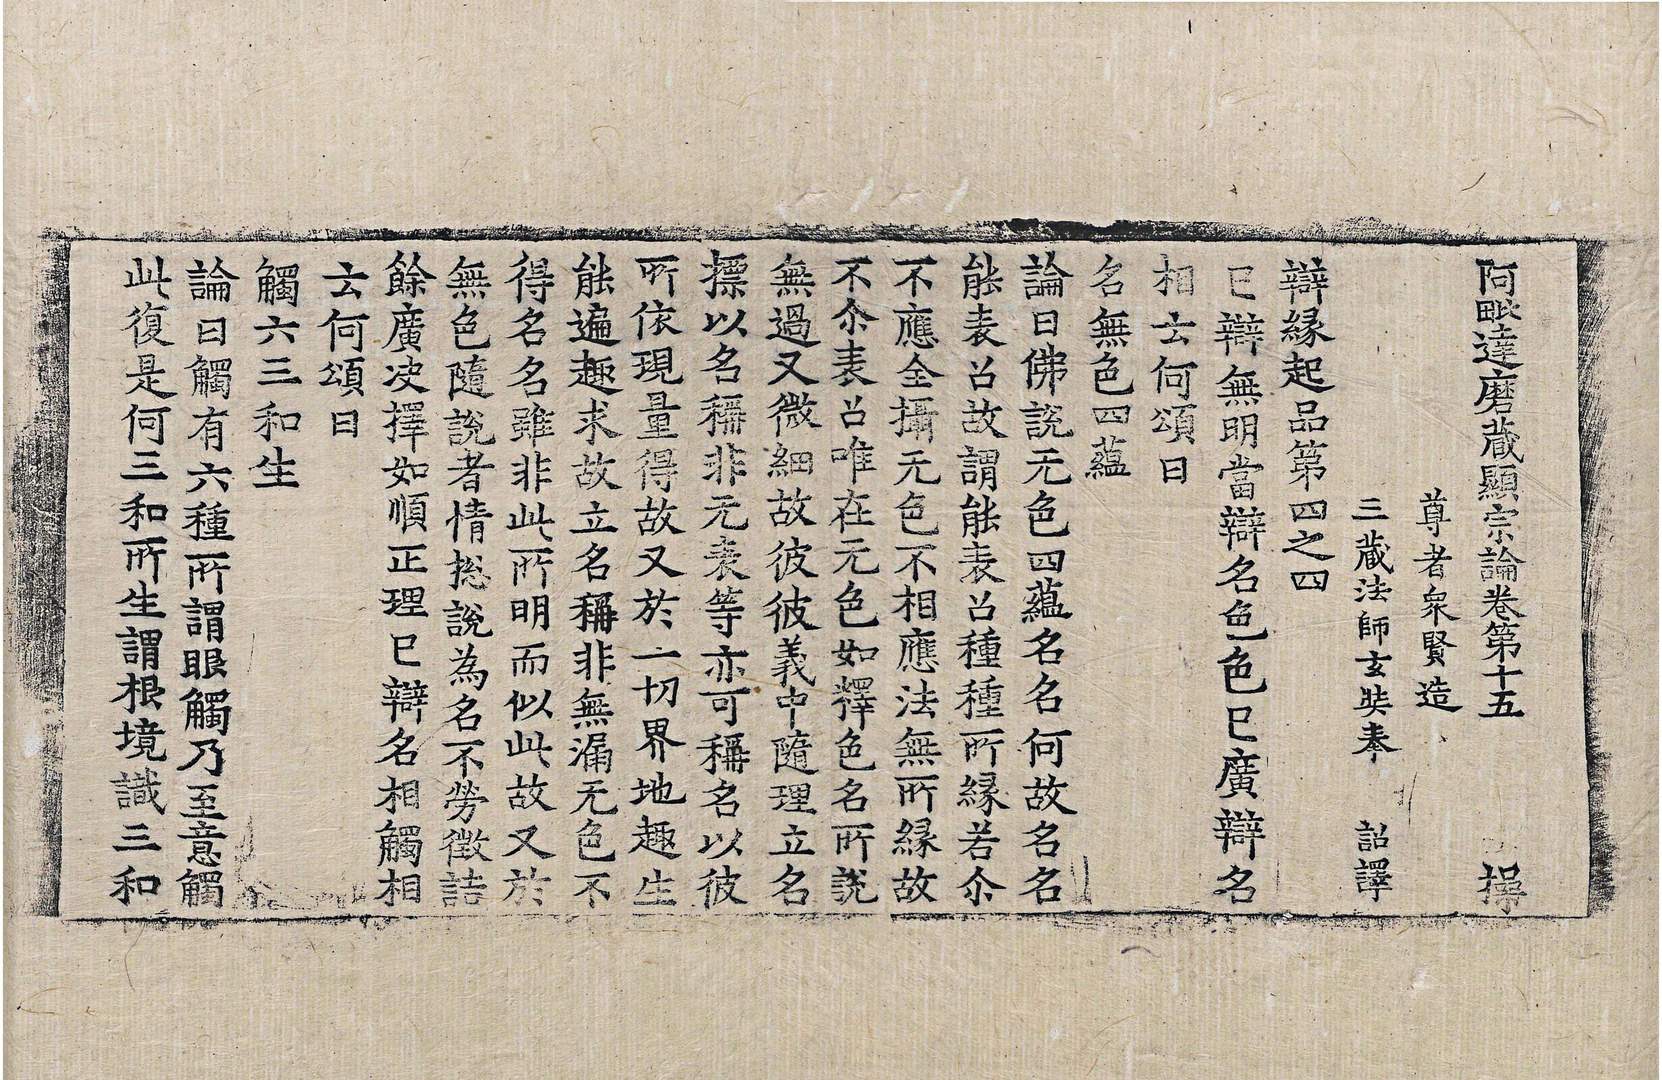 阿毗達磨藏顯宗論卷第十五 操
尊者衆賢造
三藏法師玄奘奉 詔譯
辯緣起品第四之四
已辯無明當辯名色色已廣辯名
相云何頌曰
名無色四蘊
論曰佛說无色四蘊名名何故名名
能表召故謂能表召種種所緣若尒
不應全攝无色不相應法無所緣故
不尒表召唯在无色如釋色名所說
無過又微細故彼彼義中隨理立名
摽以名稱非无表等亦可稱名以彼
所依現量得故又於一切界地趣生
能遍趣求故立名稱非無漏无色不
得名名雖非此所明而似此故又於
無色隨說者情揔說為名不勞徵詰
餘廣決擇如順正理已辯名相觸相
云何頌曰
觸六三和生
論曰觸有六種所謂眼觸乃至意觸
此復是何三和所生謂根境識三和